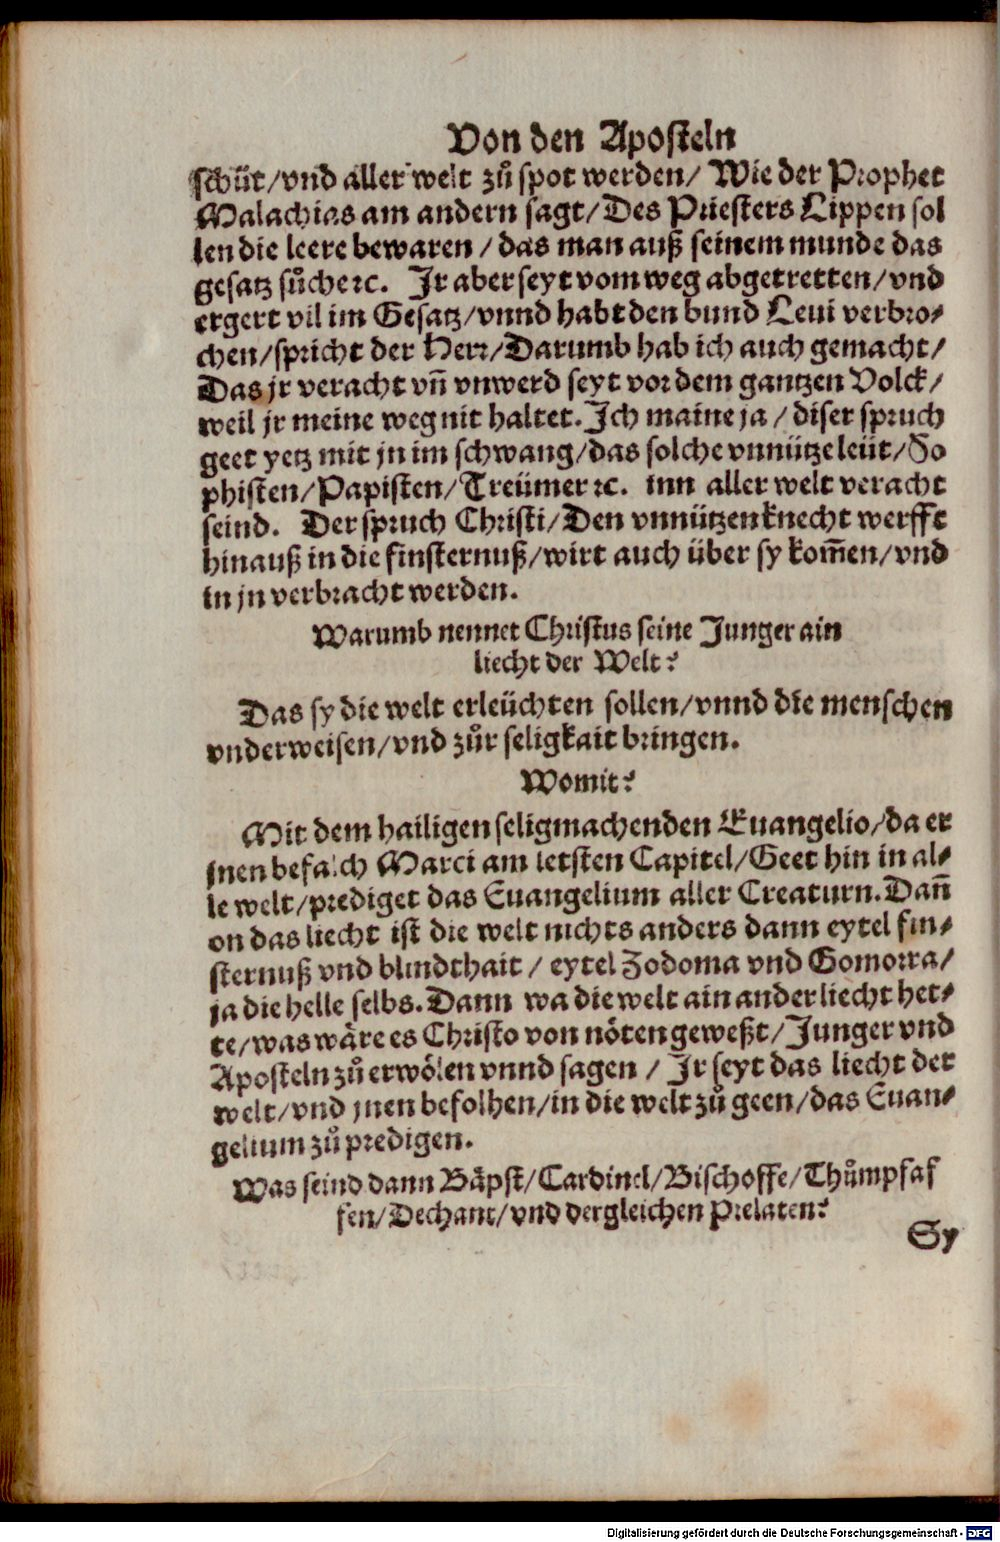 Von den Aposteln
schüt/vnd aller welt zů spot werden/ Wie der Prophet
Malachias am andern sagt/Des Priesters Lippen sol
len die leere bewaren/das man auß seinem munde das
gesatz sůche ꝛc. Jr aber seyt vom weg abgetretten/vnd
ergert vil im Gesatz/vnnd habt den bund Leui verbro⸗
chen/spricht der Herr/Darumb hab ich auch gemacht/
Das jr veracht vn̄ vnwerd seyt vor dem gantzen Volck/
weil jr meine weg nit haltet. Ich maine ja/diser spruch
geet yetz mit jn im schwang/das solche vnnütze leüt/So
phisten/Papisten/Treümer ꝛc. inn aller welt veracht
seind. Der spruch Christi/Den vnnützen knecht werfft
hinauß in die finsternuß/wirt auch über sy kom̄en/vnd
in jn verbracht werden.
Warumb nennet Christus seine Junger ain
liecht der Welt?
Das sy die welt erleüchten sollen/vnnd die menschen
vnderweisen/vnd zůr seligkait bringen.
Womit?
Mit dem hailigen seligmachenden Euangelio/da er
jnen befalch Marci am letsten Capitel/Geet hin in al⸗
le welt/prediget das Euangelium aller Creaturn. Dan̄
on das liecht ist die welt nichts anders dann eytel fin⸗
sternuß vnd blindthait/eytel Zodoma vnd Gomorra/
ja die helle selbs. Dann wa die welt ain ander liecht het⸗
te/was wäre es Christo von nöten geweßt/Junger vnd
Aposteln zů erwölen vnnd sagen/Jr seyt das liecht der
welt/vnd jnen befolhen/in die welt zů geen/das Euan⸗
gelium zů predigen.
Was seind dann Bäpst/Cardinel/Bischoffe/Thůmpfaf
fen/Dechant/vnd dergleichen Prelaten?
Sy
Digitalisierung gefördert durch die Deutsche Forschungsgemeinschaft - DFG